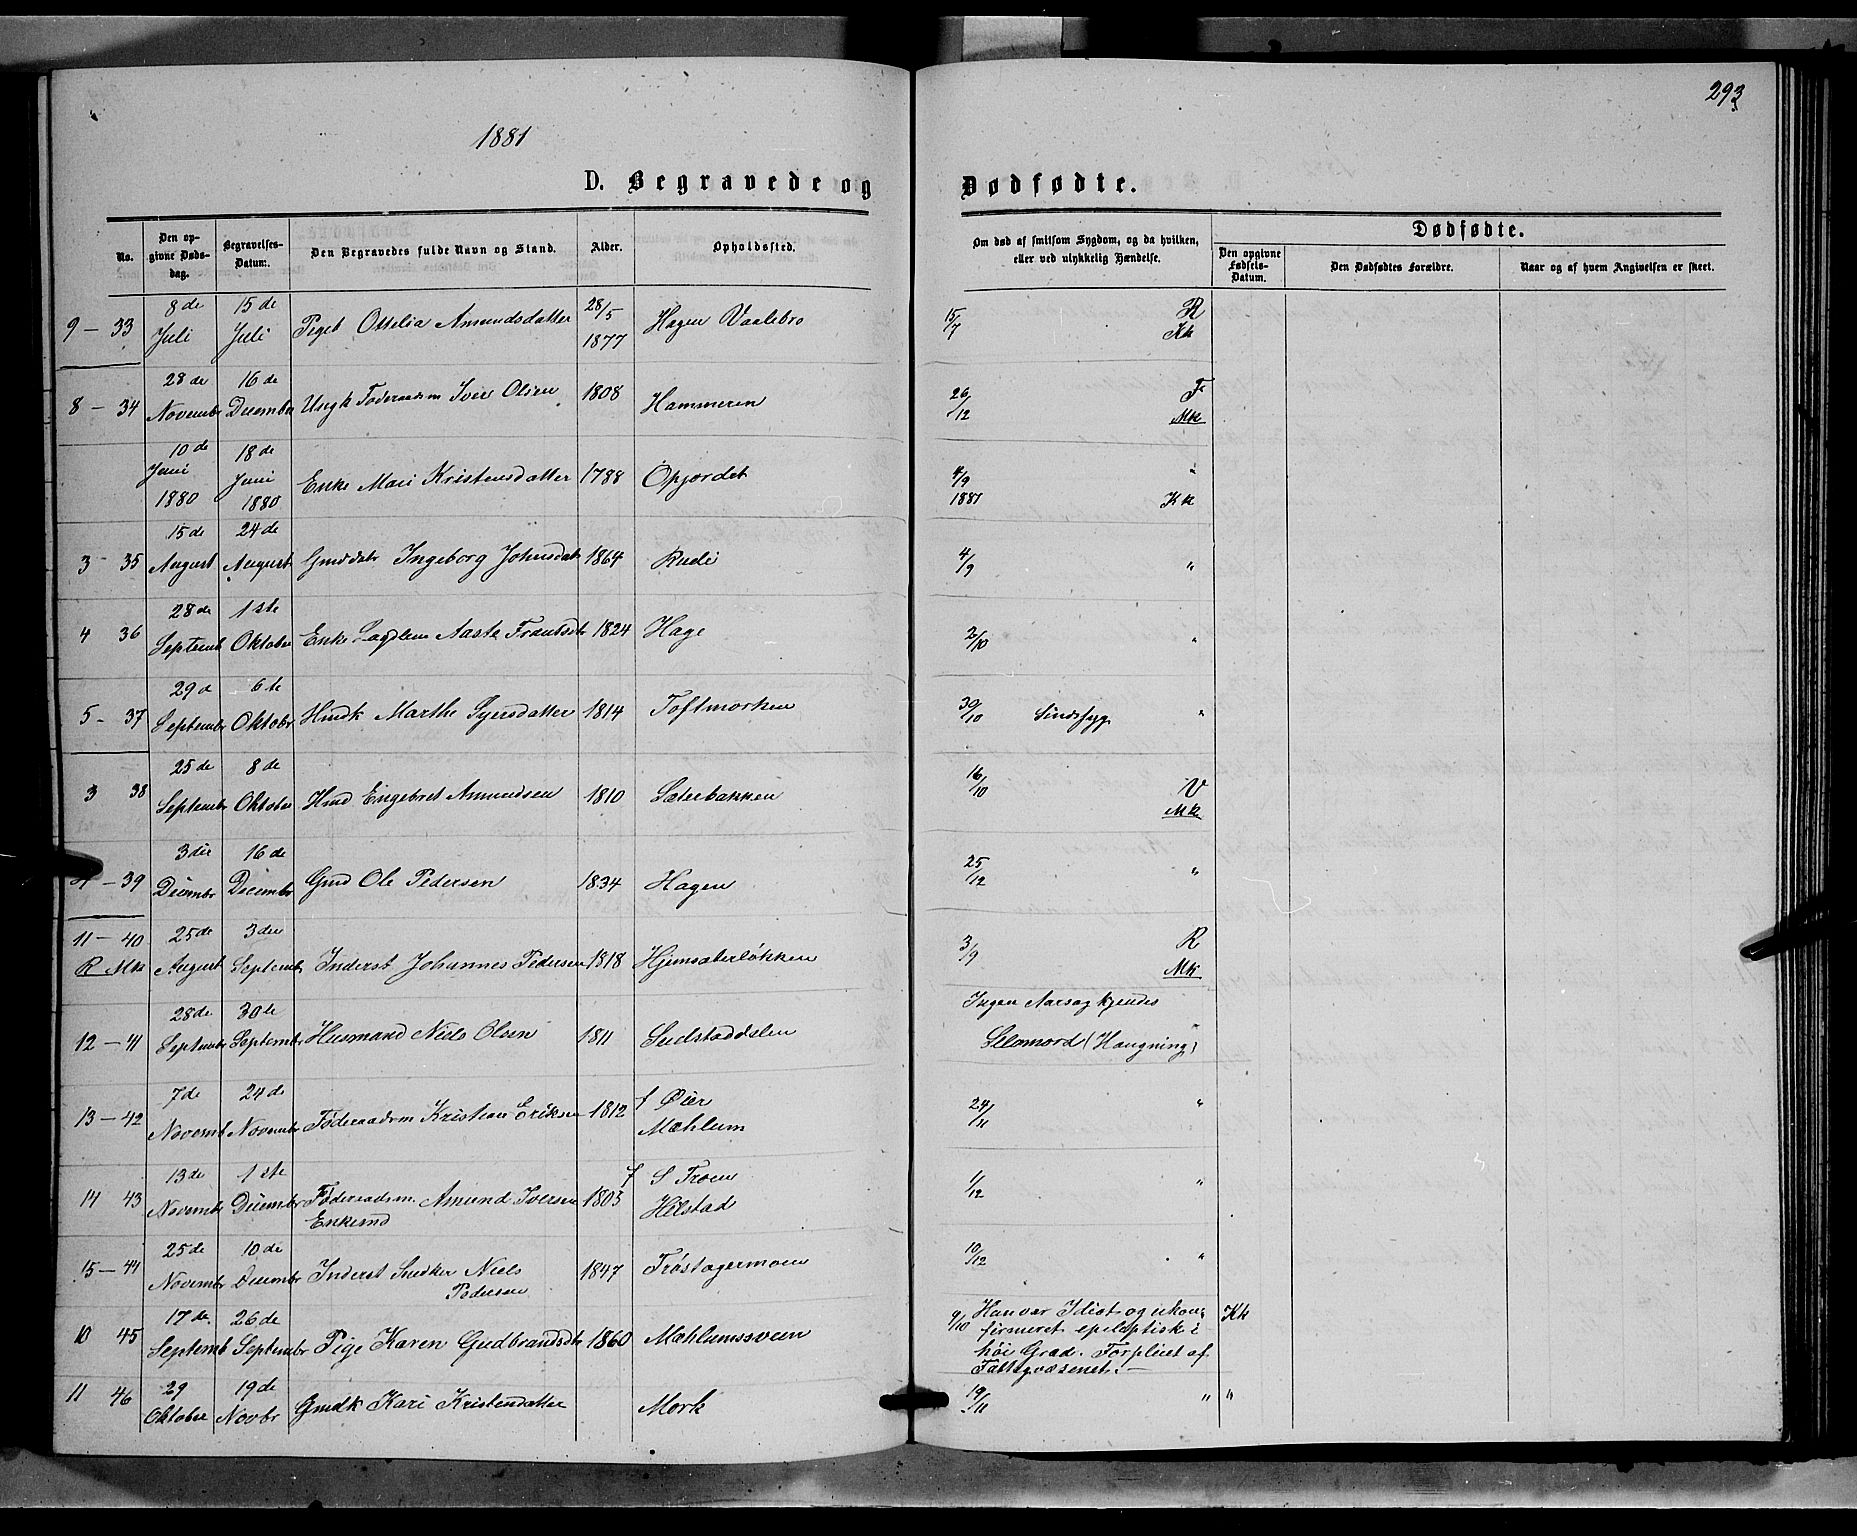 293
1881
D. Begravede og Dødfødte.
No.
Den opgivne Døds-dag.
Begravelses-Datum.
Den Begravedes fulde Navn og Stand.
Alder.
Opholdssted.
Om død af smitsom Sygdom, og da hvilken, eller ved ulykkelig Hændelse.
Dødfødte.
Den opgivne Fødsels-Datum.
Den Dødfødtes Forældre.
Naar og af hvem Angivelsen er skeet.
9 — 33 8de Juli 15de Juli Ottelia Amundsdatter 28/5 1877 Hagen Vaalebro 15/7 R Kk
8 — 34 28de Novembr 16de Decembr Ungk Føderaadsm Iver Olsen 1808 Hammeren 26/12 F Mk
10de Juni 1880 18de Juni 1880 Enke Mari Kristensdatter 1788 Opjordet 4/9 1881 " Kk
3 — 35 15de August 24de August Gmddatr Ingeborg Johnsdatr 1864 Rudi 4/9 "
4 36 28de Septemb 1ste Oktober Enke Aaste Frantsdtr 1824 Hage 2/10 "
5 — 37 29d Septembr 6te Oktobr Hmdk Marthe Syversdatter 1814 Toftmorken 30/10 Sindssyg "
3 38 25de Septembr 8de Oktober Hmd Engebret Amundsen 1810 Sæterbakken 16/10 V Mk
4 — 39 3die Decembr 16de Decembr Gmd Ole Pedersen 1834 Hagen 25/12 "
11 — 40 R Mk 25de August 3die Septemb Inderst Johannes Pedersen 1818 Hjemsæterløkken 3/9 R Mk
12 — 41 28de Septembr 30te Septembr Husmand Niels Olsen 1811 Sudstaddalen Ingen Aarsag kjendes Selvmord (Hængning) "
13 — 42 7de Novemb 24de Novembr Føderaadsm Kristian Eriksen 1812 f Øier Mæhlum 24/11 "
14 43 13de Novemb 1ste Decembr Føderaadsm. Amund Iversen Enkemd 1803 f S Troen Hilstad 1/12 "
15 — 44 25de Novembr 10de Decembr Inderst Snedker Niels Pedersen 1847 Frøstagermoen 10/12 "
10 45 17de Septemb 26de Septembr Pige Karen Gudbrandsdtr 1860 Mæhlumssveen 9/10 Hun var Idiot og ukon-
firmeret epileptisk i
høi Grad. Forpleiet af
Fattigvæsenet. — Kk
11 46 29 Oktober 19de Novbr Gmdk Kari Kristensdatter Mork 19/11 " "